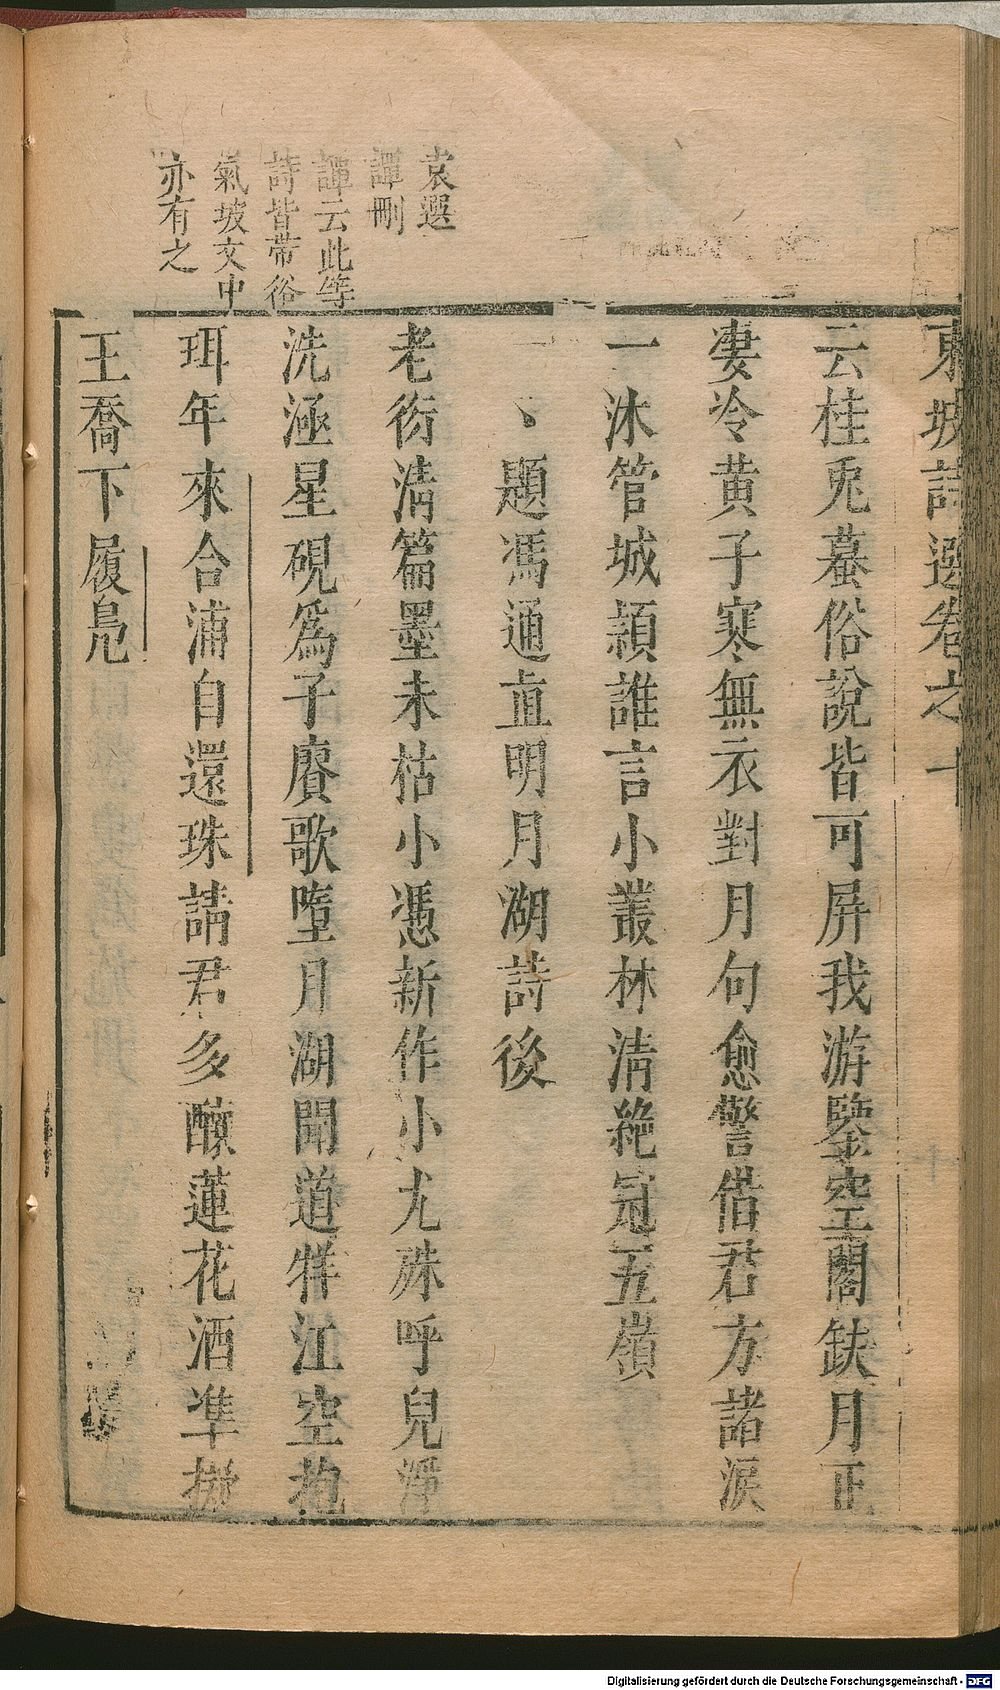 東坡詩選卷之十
云桂兎蟇俗說皆可屏我游鑒空閣缺月正
凄冷黄子寒無衣對月句愈警借君方諸淚
一沐管城頴誰言小叢林清絶冠五嶺
題馮通直明月湖詩後
老衍清篇墨未枯小馮新作小尤殊呼兒淨
洗涵星硯爲子賡歌墮月湖聞道牂江空抱
珥年來合浦自還珠請君多釀蓮花酒凖擬
王喬下履鳬
袁選
譚刪
譚云此等
詩皆帯俗
氣坡文中
亦有之
Digitalisierung gefördert durch die Deutsche Forschungsgemeinschaft - DFG